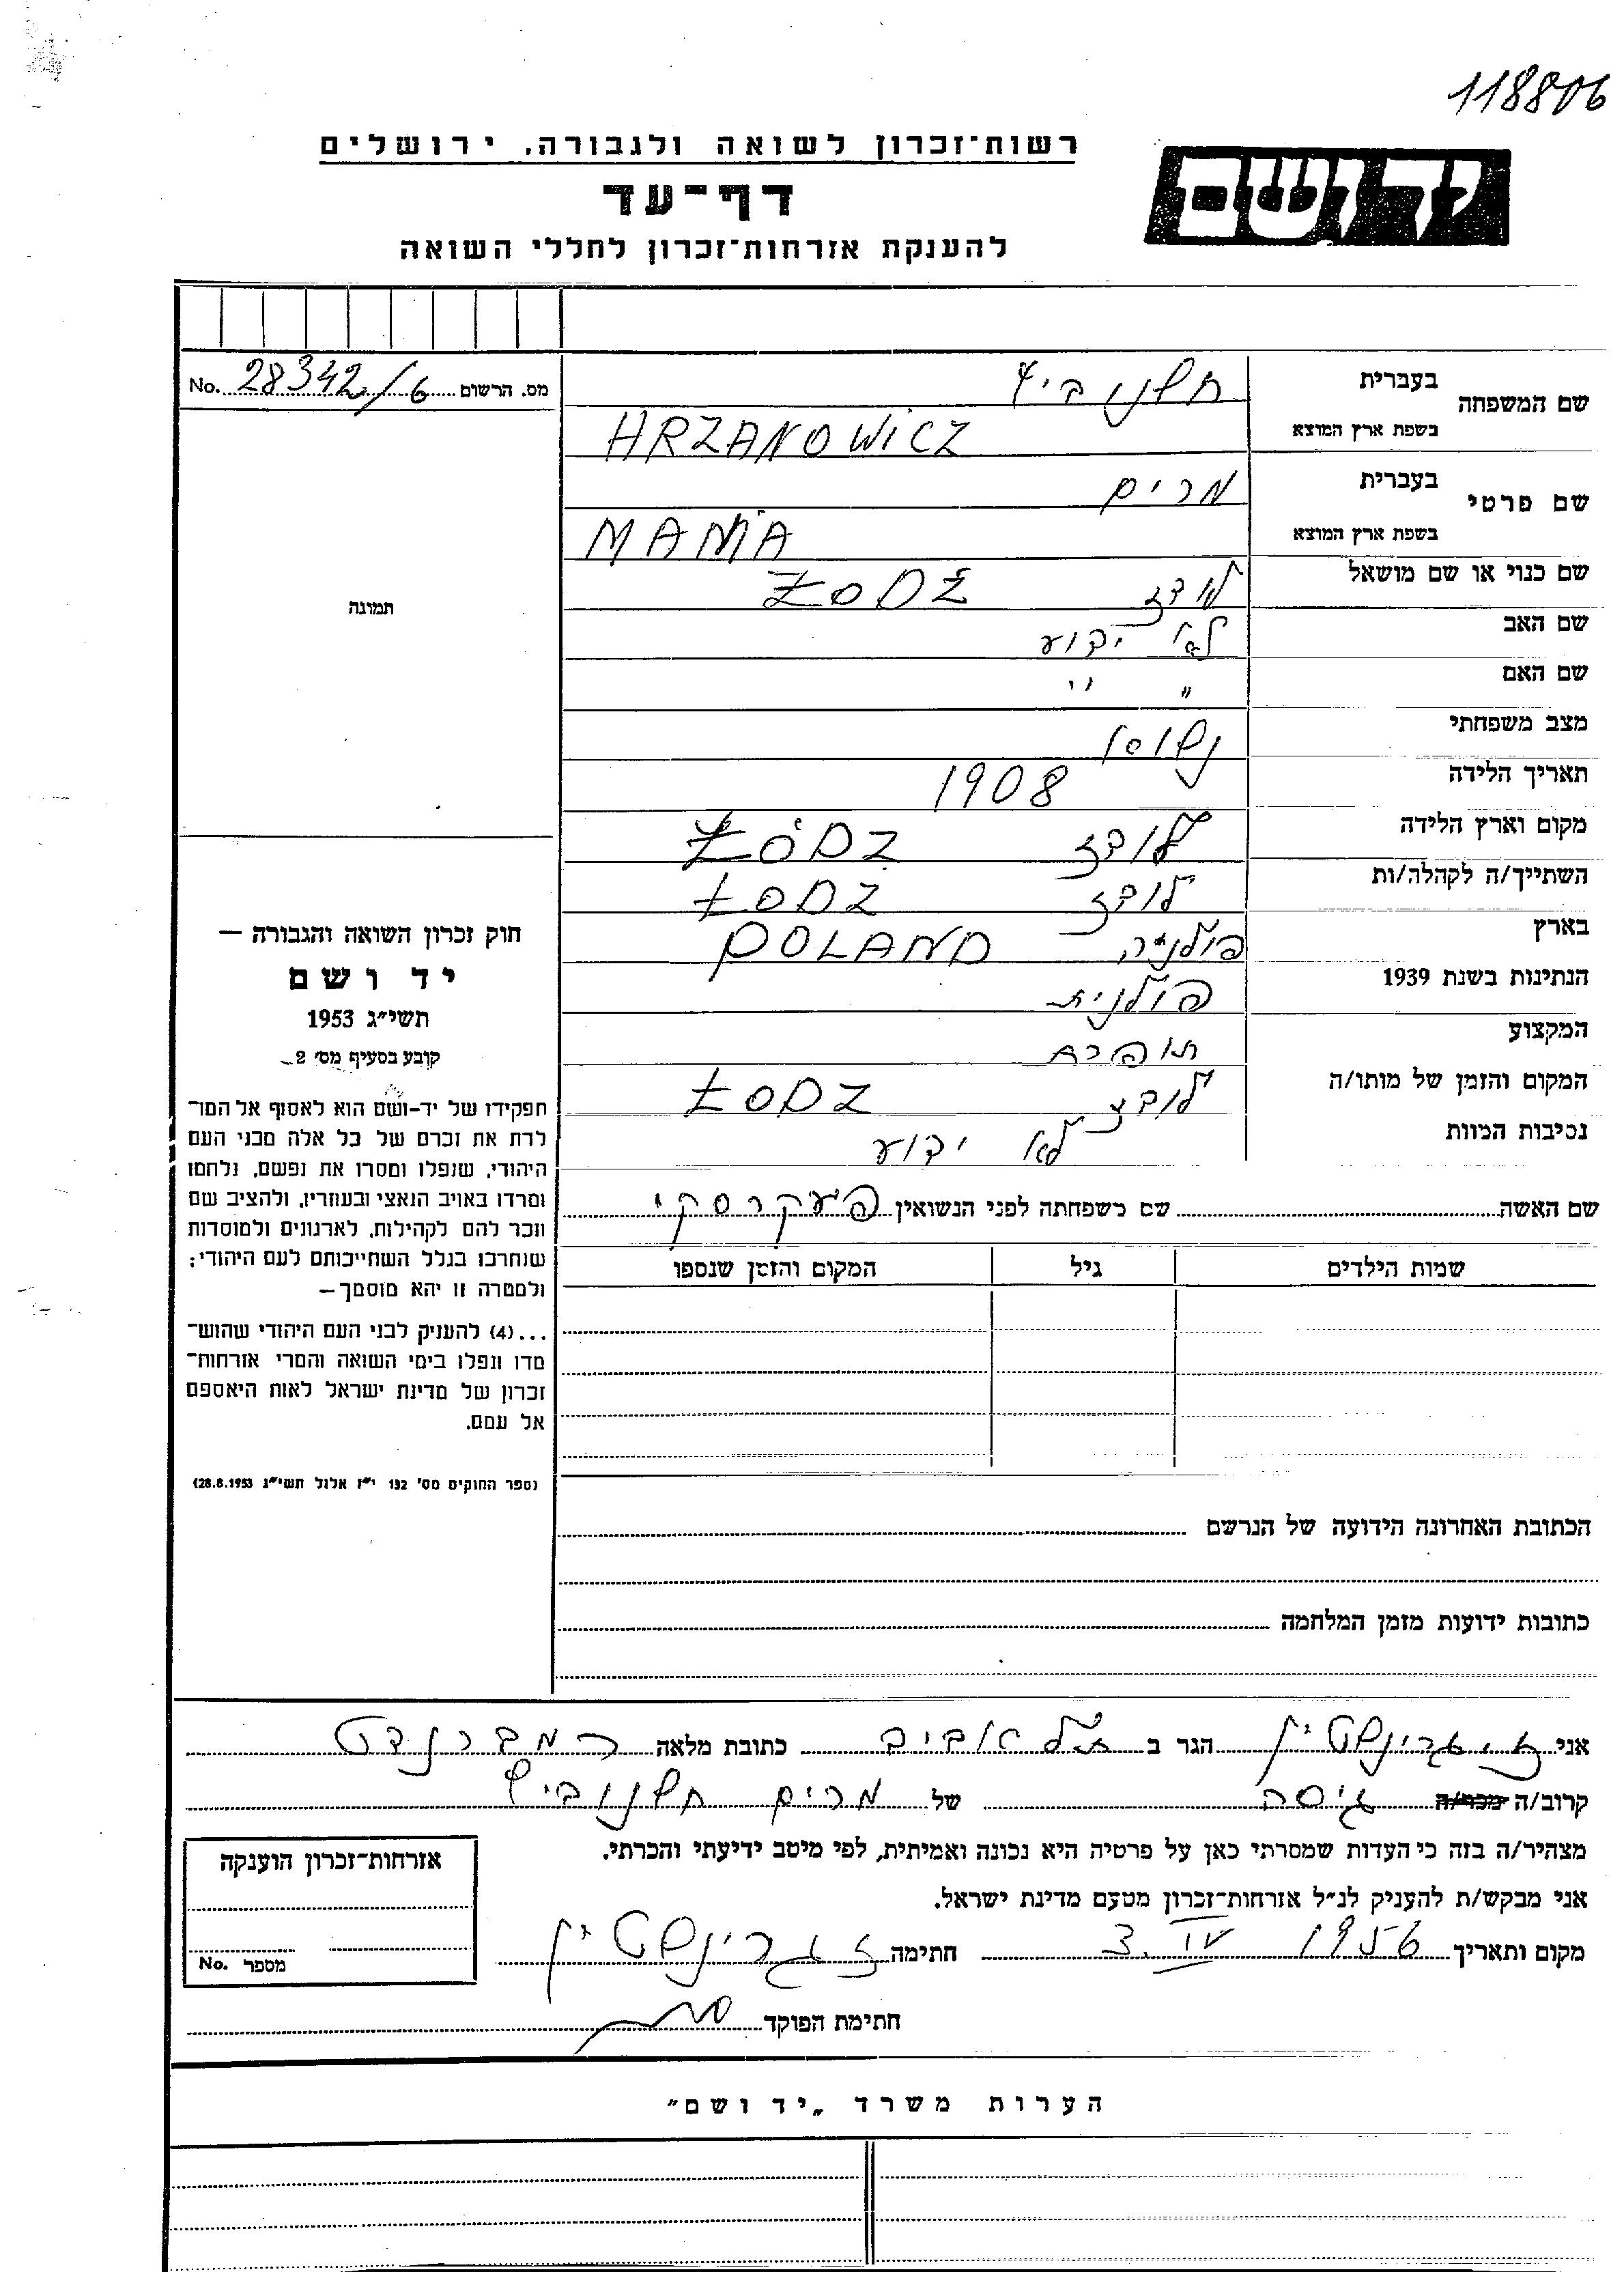 118806
רשות־זכרון לשואה ולגבורה, ירושלים
יד ושם
דף־עד
להענקת אזרחות־זכרון לחללי השואה
No. 28342/6 מס. הרשום
תמונה
חוק זכרון השואה והגבורה —
יד ושם
תשי״ג 1953
קובע בסעיף מס׳ 2
תפקידו של יד-ושם הוא לאסוף אל המו־
לדת את זכרם של כל אלה מבני העם
היהודי, שנפלו ומסרו את נפשם, נלחמו
ומרדו באויב הנאצי ובעוזריו, ולהציב שם
וזכר להם לקהילות, לארגונים ולמוסדות
שנחרבו בגלל השתייכותם לעם היהודי;
ולמטרה זו יהא מוסמך—
...(4) להעניק לבני העם היהודי שהוש־
מדו ונפלו בימי השואה והמרי אזרחות־
זכרון של מדינת ישראל לאות היאספם
אל עמם.
(ספר החוקים מס׳ 132 י״ז אלול תשי״ג 28.8.1953)
שם המשפחה
בעברית
בשפת ארץ המוצא HRZANOWICZ
שם פרטי
בעברית מרים
בשפת ארץ המוצא MANIA
שם כנוי או שם מושאל לודז ŁODŹ
שם האב לא ידוע
שם האם " "
מצב משפחתי
תאריך הלידה 1908
מקום וארץ הלידה לודז ŁÓDZ
השתייך/ה לקהלה/ות לודז ŁODZ
בארץ פולניה POLAND
הנתינות בשנת 1939 פולנית
המקצוע תופרת
המקום והזמן של מותו/ה לודז ŁODZ
נסיבות המוות לא ידוע
שם האשה שם משפחתה לפני הנשואין
שמות הילדים גיל המקום והזמן שנספו
הכתובת האחרונה הידועה של הנרשם
כתובות ידועות מזמן המלחמה
אני גרינשטיין הגר ב תל אביב כתובת מלאה רמברנדט
קרוב/ה מכר/ה גיסה של מרים
מצהיר/ה בזה כי העדות שמסרתי כאן על פרטיה היא נכונה ואמיתית, לפי מיטב ידיעתי והכרתי.
אני מבקש/ת להעניק לנ״ל אזרחות־זכרון מטעם מדינת ישראל.
מקום ותאריך 3. IV 1956 חתימה גרינשטיין
חתימת הפוקד
אזרחות־זכרון הוענקה
מספר No.
הערות משרד „יד ושם״